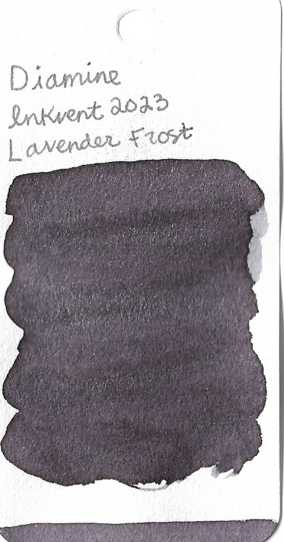 Diamine
Inkvent 2023
Lavender Frost